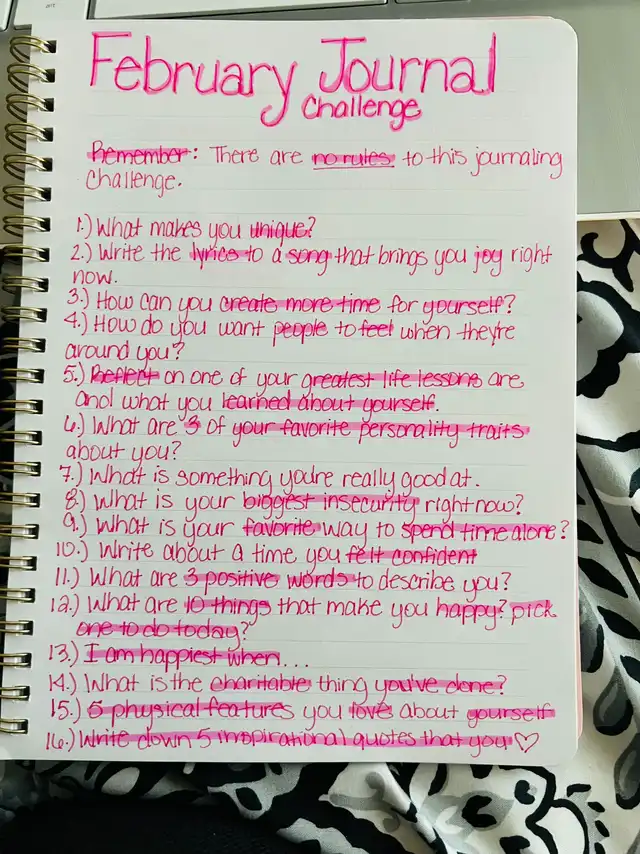 February Journal
Challenge
Remember: There are no rules to this journaling
challenge.
1.) What makes you unique?
2.) Write the lyrics to a song that brings you joy right
now.
3.) How can you create more time for yourself?
4.) How do you want people to feel when they're
around you?
5.) Reflect on one of your greatest life lessons are
and what you learned about yourself.
6.) What are 3 of your favorite personality traits
about you?
7.) What is something you're really good at.
8.) What is your biggest insecurity right now?
9.) What is your favorite way to spend time alone?
10.) Write about a time you felt confident
11.) What are 3 positive words to describe you?
12.) What are 10 things that make you happy? pick
one to do today?
13.) I am happiest when...
14.) What is the charitable thing you've done?
15.) 5 physical features you love about yourself
16.) Write down 5 inspirational quotes that you ♡